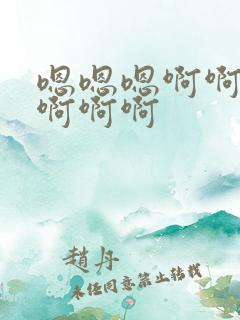 嗯嗯嗯啊啊
啊啊啊
趙丹
未经同意禁止转载